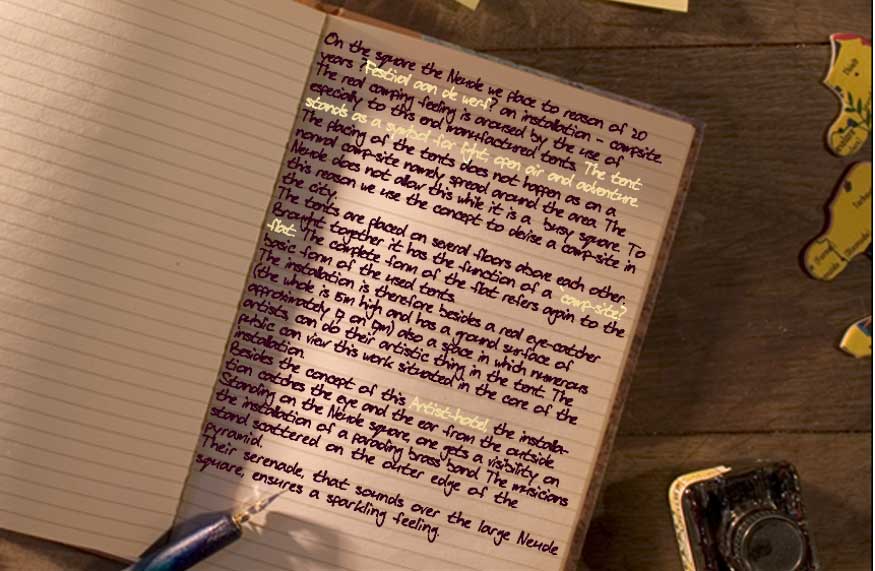 On the square the Neude we place to reason of 20
years ?Festival aan de werf? an installation - campsite.
The real camping feeling is aroused by the use of
especially to this end manufactured tents. The tent
stands as a symbol for light, open air and adventure.
The placing of the tents does not happen as on a
normal camp-site namely spread around the area. The
Neude does not allow this while it is a busy square. To
this reason we use the concept to devise a camp-site in
the city.
The tents are placed on several floors above each other.
Brought together it has the function of a camp-site?
flat. The complete form of the flat refers again to the
basic form of the used tents.
The installation is therefore besides a real eye-catcher
(the whole is 15m high and has a ground surface of
approximately 17 on 17m) also a space in which numerous
artists can do their artistic thing in the tent. The
public can view this work situated in the core of the
installation.
Besides the concept of this Artist-hotel, the installa-
tion catches the eye and the ear from the outside.
Standing on the Neude square, one gets a visibility on
the installation of a parading brass band. The musicians
stand scattered on the outer edge of the
pyramid.
Their serenade, that sounds over the large Neude
square, ensures a sparkling feeling.